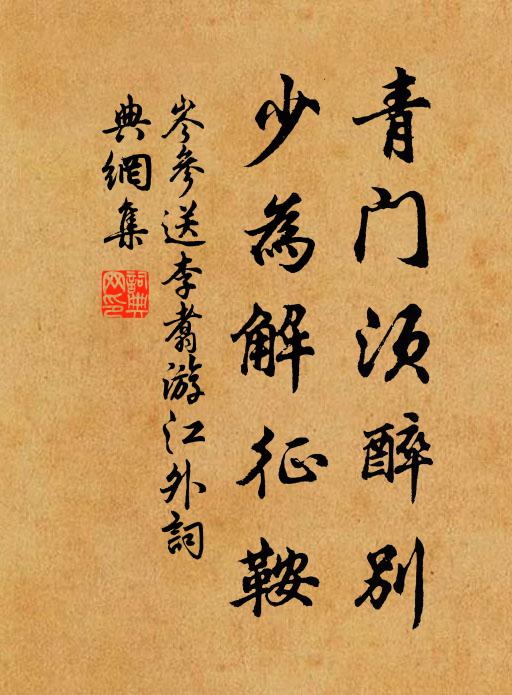 青门须醉别
少為解征鞍
岑參送李翥游江外詞
典網集
詞典
网印